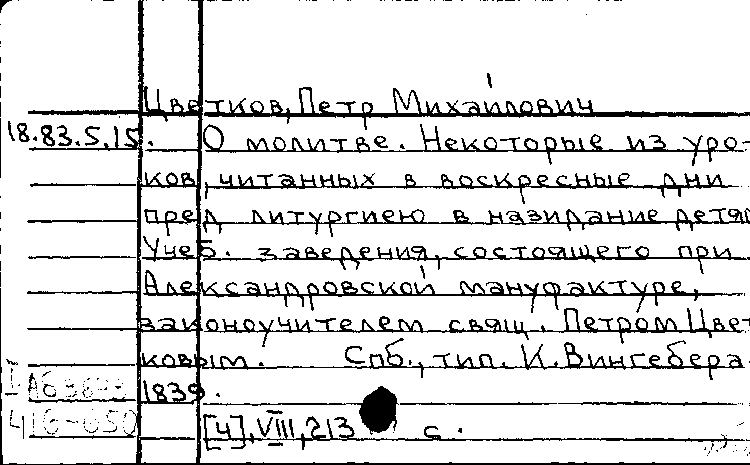 Цветков, Петр Михайлович
18.83.5.15. О молитве. Некоторые из уро-
ков, читанных в воскресные дни
пред литургиею в назидание детям
Учеб. заведения, состоящего при
Александровской мануфактуре,
законоучителем свящ. Петром Цвет-
ковым. Спб., тип. К. Вингебера
1839.
416-650
[4], VIII, 213 с.